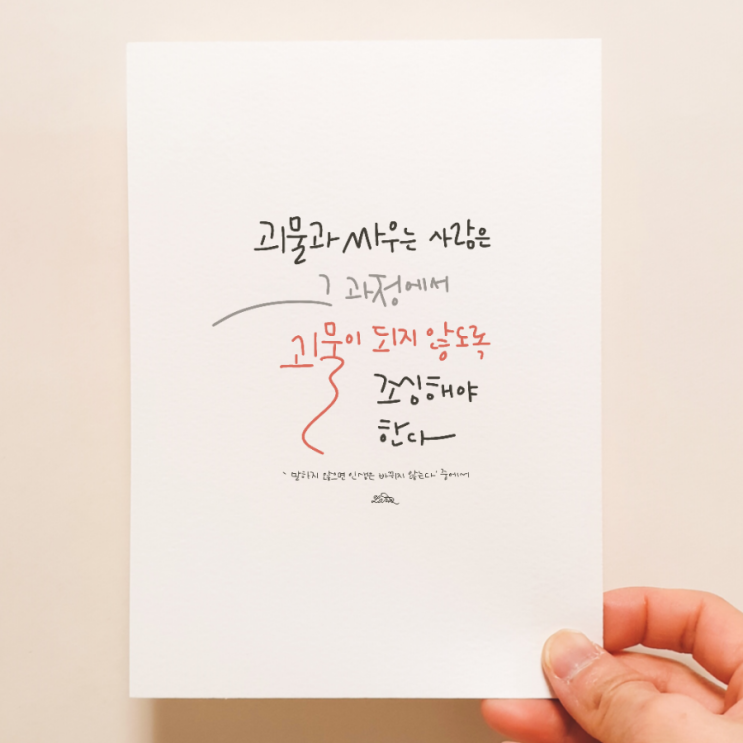 괴물과 싸우는 사람은
그 과정에서
괴물이 되지 않도록
조심해야
한다
'말하지 않으면 인생은 바뀌지 않는다' 중에서